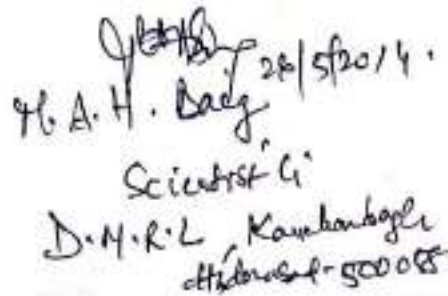 28/5/2014.
M. A. H. Baig
Scientist 'G'
D.M.R.L, Kanchanbagh
Hyderabad-500058